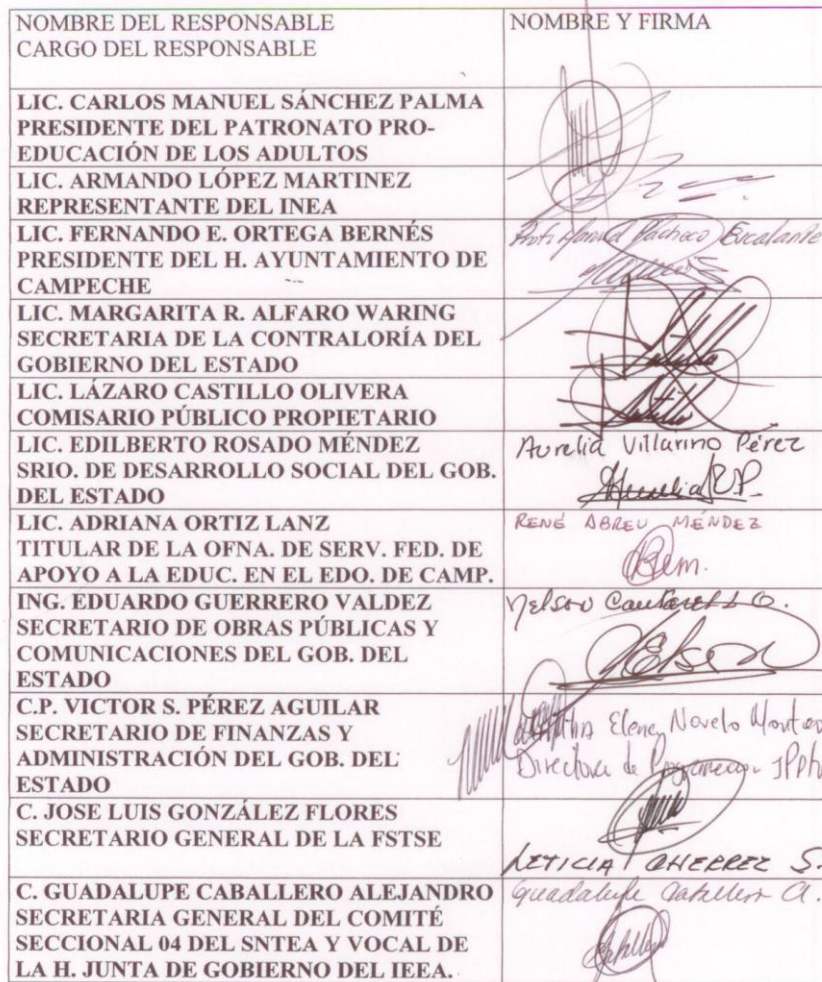 NOMBRE DEL RESPONSABLE
CARGO DEL RESPONSABLE
NOMBRE Y FIRMA
LIC. CARLOS MANUEL SÁNCHEZ PALMA
PRESIDENTE DEL PATRONATO PRO-
EDUCACIÓN DE LOS ADULTOS
LIC. ARMANDO LÓPEZ MARTINEZ
REPRESENTANTE DEL INEA
LIC. FERNANDO E. ORTEGA BERNÉS
PRESIDENTE DEL H. AYUNTAMIENTO DE
CAMPECHE
Pacheco Escalante
LIC. MARGARITA R. ALFARO WARING
SECRETARIA DE LA CONTRALORÍA DEL
GOBIERNO DEL ESTADO
LIC. LÁZARO CASTILLO OLIVERA
COMISARIO PÚBLICO PROPIETARIO
LIC. EDILBERTO ROSADO MÉNDEZ
SRIO. DE DESARROLLO SOCIAL DEL GOB.
DEL ESTADO
Aurelia Villarino Pérez
LIC. ADRIANA ORTIZ LANZ
TITULAR DE LA OFNA. DE SERV. FED. DE
APOYO A LA EDUC. EN EL EDO. DE CAMP.
RENÉ ABREU MÉNDEZ
ING. EDUARDO GUERRERO VALDEZ
SECRETARIO DE OBRAS PÚBLICAS Y
COMUNICACIONES DEL GOB. DEL
ESTADO
Nelson
C.P. VICTOR S. PÉREZ AGUILAR
SECRETARIO DE FINANZAS Y
ADMINISTRACIÓN DEL GOB. DEL
ESTADO
Elena Novelo
Directora de
C. JOSE LUIS GONZÁLEZ FLORES
SECRETARIO GENERAL DE LA FSTSE
LETICIA S.
C. GUADALUPE CABALLERO ALEJANDRO
SECRETARIA GENERAL DEL COMITÉ
SECCIONAL 04 DEL SNTEA Y VOCAL DE
LA H. JUNTA DE GOBIERNO DEL IEEA.
Guadalupe Caballero A.